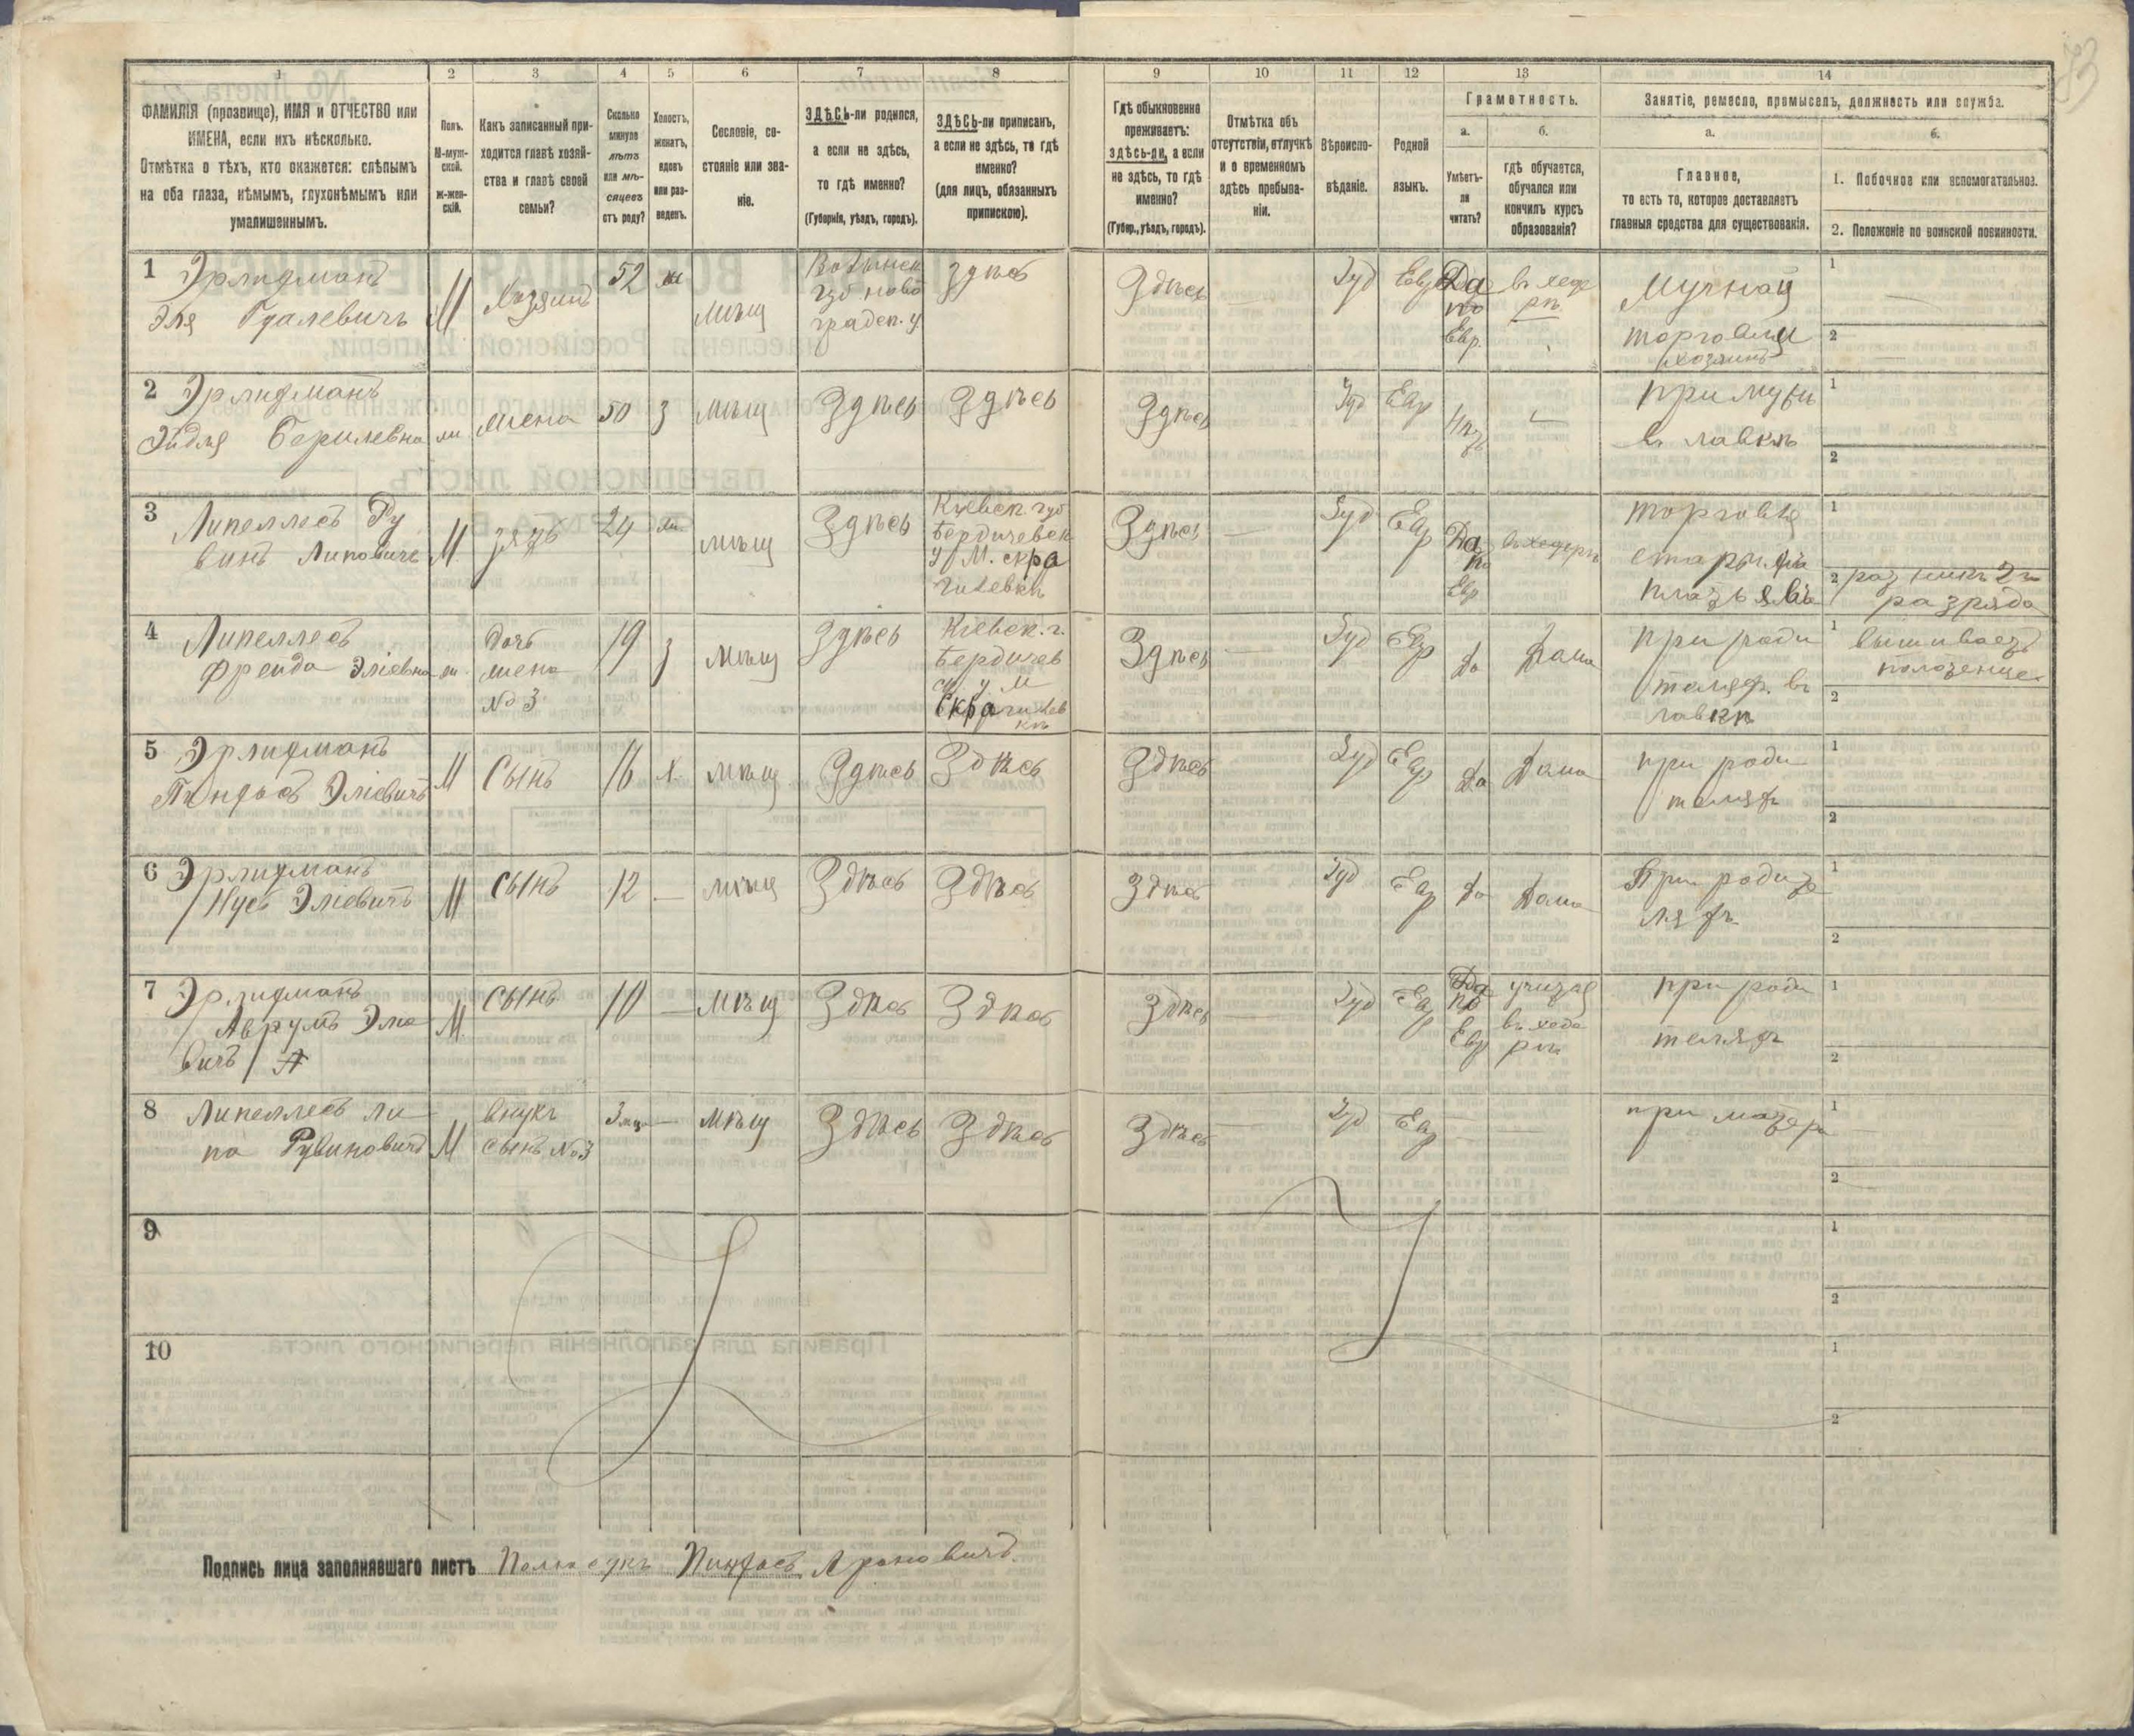 1 2 3 4 5 6 7 8 9 10 11 12 13 14
ФАМИЛІЯ (прозвище), ИМЯ и ОТЧЕСТВО или
ИМЕНА, если ихъ нѣсколько.
Отмѣтка о тѣхъ, кто окажется: слѣпымъ
на оба глаза, нѣмымъ, глухонѣмымъ или
умалишеннымъ.
Полъ.
М-муж-
ской.
Ж-жен-
скій.
Какъ записанный при-
ходится главѣ хозяй-
ства и главѣ своей
семьи?
Сколько
минуло
лѣтъ
или мѣ-
сяцевъ
отъ роду?
Холостъ,
женатъ,
вдовъ
или раз-
веденъ.
Сословіе, со-
стояніе или зва-
ніе.
ЗДѢСЬ-ли родился,
а если не здѣсь,
то гдѣ именно?
(Губернія, уѣздъ, городъ).
ЗДѢСЬ-ли приписанъ,
а если не здѣсь, то гдѣ
именно?
(для лицъ, обязанныхъ
припискою).
Гдѣ обыкновенно
проживаетъ:
здѣсь-ли, а если
не здѣсь, то гдѣ
именно?
(Губер., уѣздъ, городъ).
Отмѣтка объ
отсутствіи, отлучкѣ
и о временномъ
здѣсь пребыва-
ніи.
Вѣроиспо-
вѣданіе.
Родной
языкъ.
Грамотность.
а.
Умѣетъ-
ли
читать?
б.
гдѣ обучается,
обучался или
кончилъ курсъ
образованія?
Занятіе, ремесло, промыселъ, должность или служба.
а.
Главное,
то есть то, которое доставляетъ
главныя средства для существованія.
б.
1. Побочное или вспомогательное.
2. Положеніе по воинской повинности.
1 Эрлихманъ
Эля М Хозяинъ 52 ж мѣщ
Волынск
губ ново
град в. у.
здѣсь
Здѣсь
Іуд Евр Да
по
Евр.
въ хеде
рѣ
Мучной
торговли
хозяинъ
1
2
2 Эрлихманъ
Эйдля Берилевна ж жена 50 з мѣщ Здѣсь Здѣсь
Здѣсь Іуд Евр Нѣтъ
при мужи
въ лавкѣ
1
2
3 Липеллесъ Ру
винъ Липовичъ М зять 24 ж мѣщ Здѣсь
Кіевск. губ
Бердичевск
у М. скра
гилевкѣ
Здѣсь Іуд Евр Да
по
Евр
въ хедерѣ
торговля
старымъ
платьямъ
1
2 ратникъ 2го
разряда
4 Липеллесъ
Фрейда Эліевна ж
дочь
жена
№ 3
19 з мѣщ Здѣсь
Кіевск. г.
Бердичев
ск у м
Скрагилев
кѣ
Здѣсь Іуд Евр Да Дома
при роди
теляхъ. въ
лавкѣ
1 вышиваетъ
полотенце
2
5 Эрлихманъ
Пинхасъ Эліевичъ М Сынъ 16 х. мѣщ Здѣсь Здѣсь
Здѣсь Іуд Евр Да Дома
при роди
теляхъ
1
2
6 Эрлихманъ
Нусъ Эліевичъ М сынъ 12 — мѣщ Здѣсь Здѣсь
Здѣсь Іуд Евр Да Дома
При родите
ляхъ
1
2
7 Эрлихманъ
Аврумъ Эліе
вичъ М. сынъ 10 — мѣщ Здѣсь Здѣсь
Здѣсь Іуд Евр
Да
по
Евр
учится
въ хеде
рѣ
при роди
теляхъ
1
2
8 Липеллесъ ли
па Рувиновичъ М
внукъ
сынъ №3
3 мѣщ Здѣсь Здѣсь
Здѣсь Іуд Евр
при матери
1
2
9
1
2
10
1
2
Подпись лица заполнявшаго листъ Пинхасъ Ароновичъ.